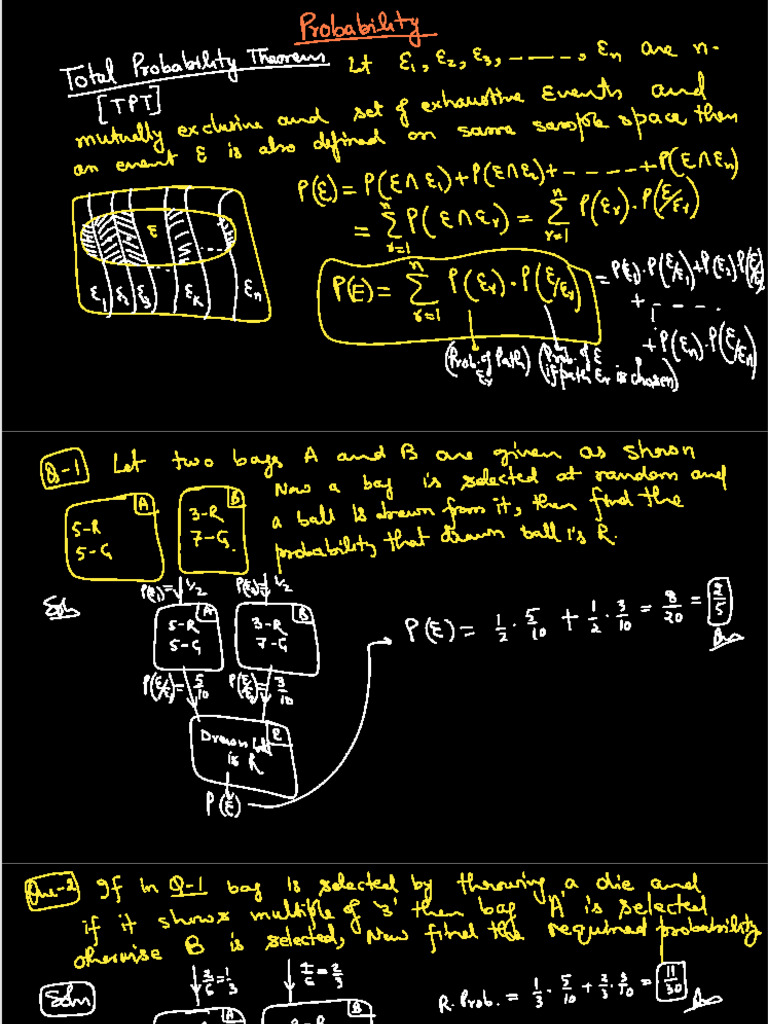 Probability
Total Probability Theorem Let ε₁, ε₂, ε₃, -----, εn are n-
[TPT]
mutually exclusive and set of exhaustive Events and
an event ε is also defined on same sample space then
P(ε) = P(ε∩ε₁) + P(ε∩ε₂) + - - - - - + P(ε∩εn)
= Σ(r=1 to n) P(ε∩εr) = Σ(r=1 to n) P(εr)·P(ε/εr)
ε
ε₁ ε₂ ε₃ εk εn
P(ε) = Σ(r=1 to n) P(εr)·P(ε/εr) = P(ε₁)·P(ε/ε₁) + P(ε₂)·P(ε/ε₂)
+ - - - -
+ P(εn)·P(ε/εn)
(Prob. of Path εr) (Prob. of ε if path εr is chosen)
Q-1 Let two bags A and B are given as shown
A 5-R 5-G
B 3-R 7-G
Now a bag is selected at random and
a ball is drawn from it, then find the
probability that drawn ball is R.
Soln
P(ε₁)=1/2 P(ε₂)=1/2
A 5-R 5-G
B 3-R 7-G
P(ε/ε₁)=5/10 P(ε/ε₂)=3/10
Drawn ball is R
P(ε)
P(ε) = 1/2 · 5/10 + 1/2 · 3/10 = 8/20 = 2/5
Ans
Que-2 If in Q-1 bag is selected by throwing a die and
if it shows multiple of '3' then bag 'A' is selected
otherwise B is selected, Now find the required probability
Soln
2/6=1/3 4/6=2/3
A B
R. Prob. = 1/3 · 5/10 + 2/3 · 3/10 = 11/30
Ans